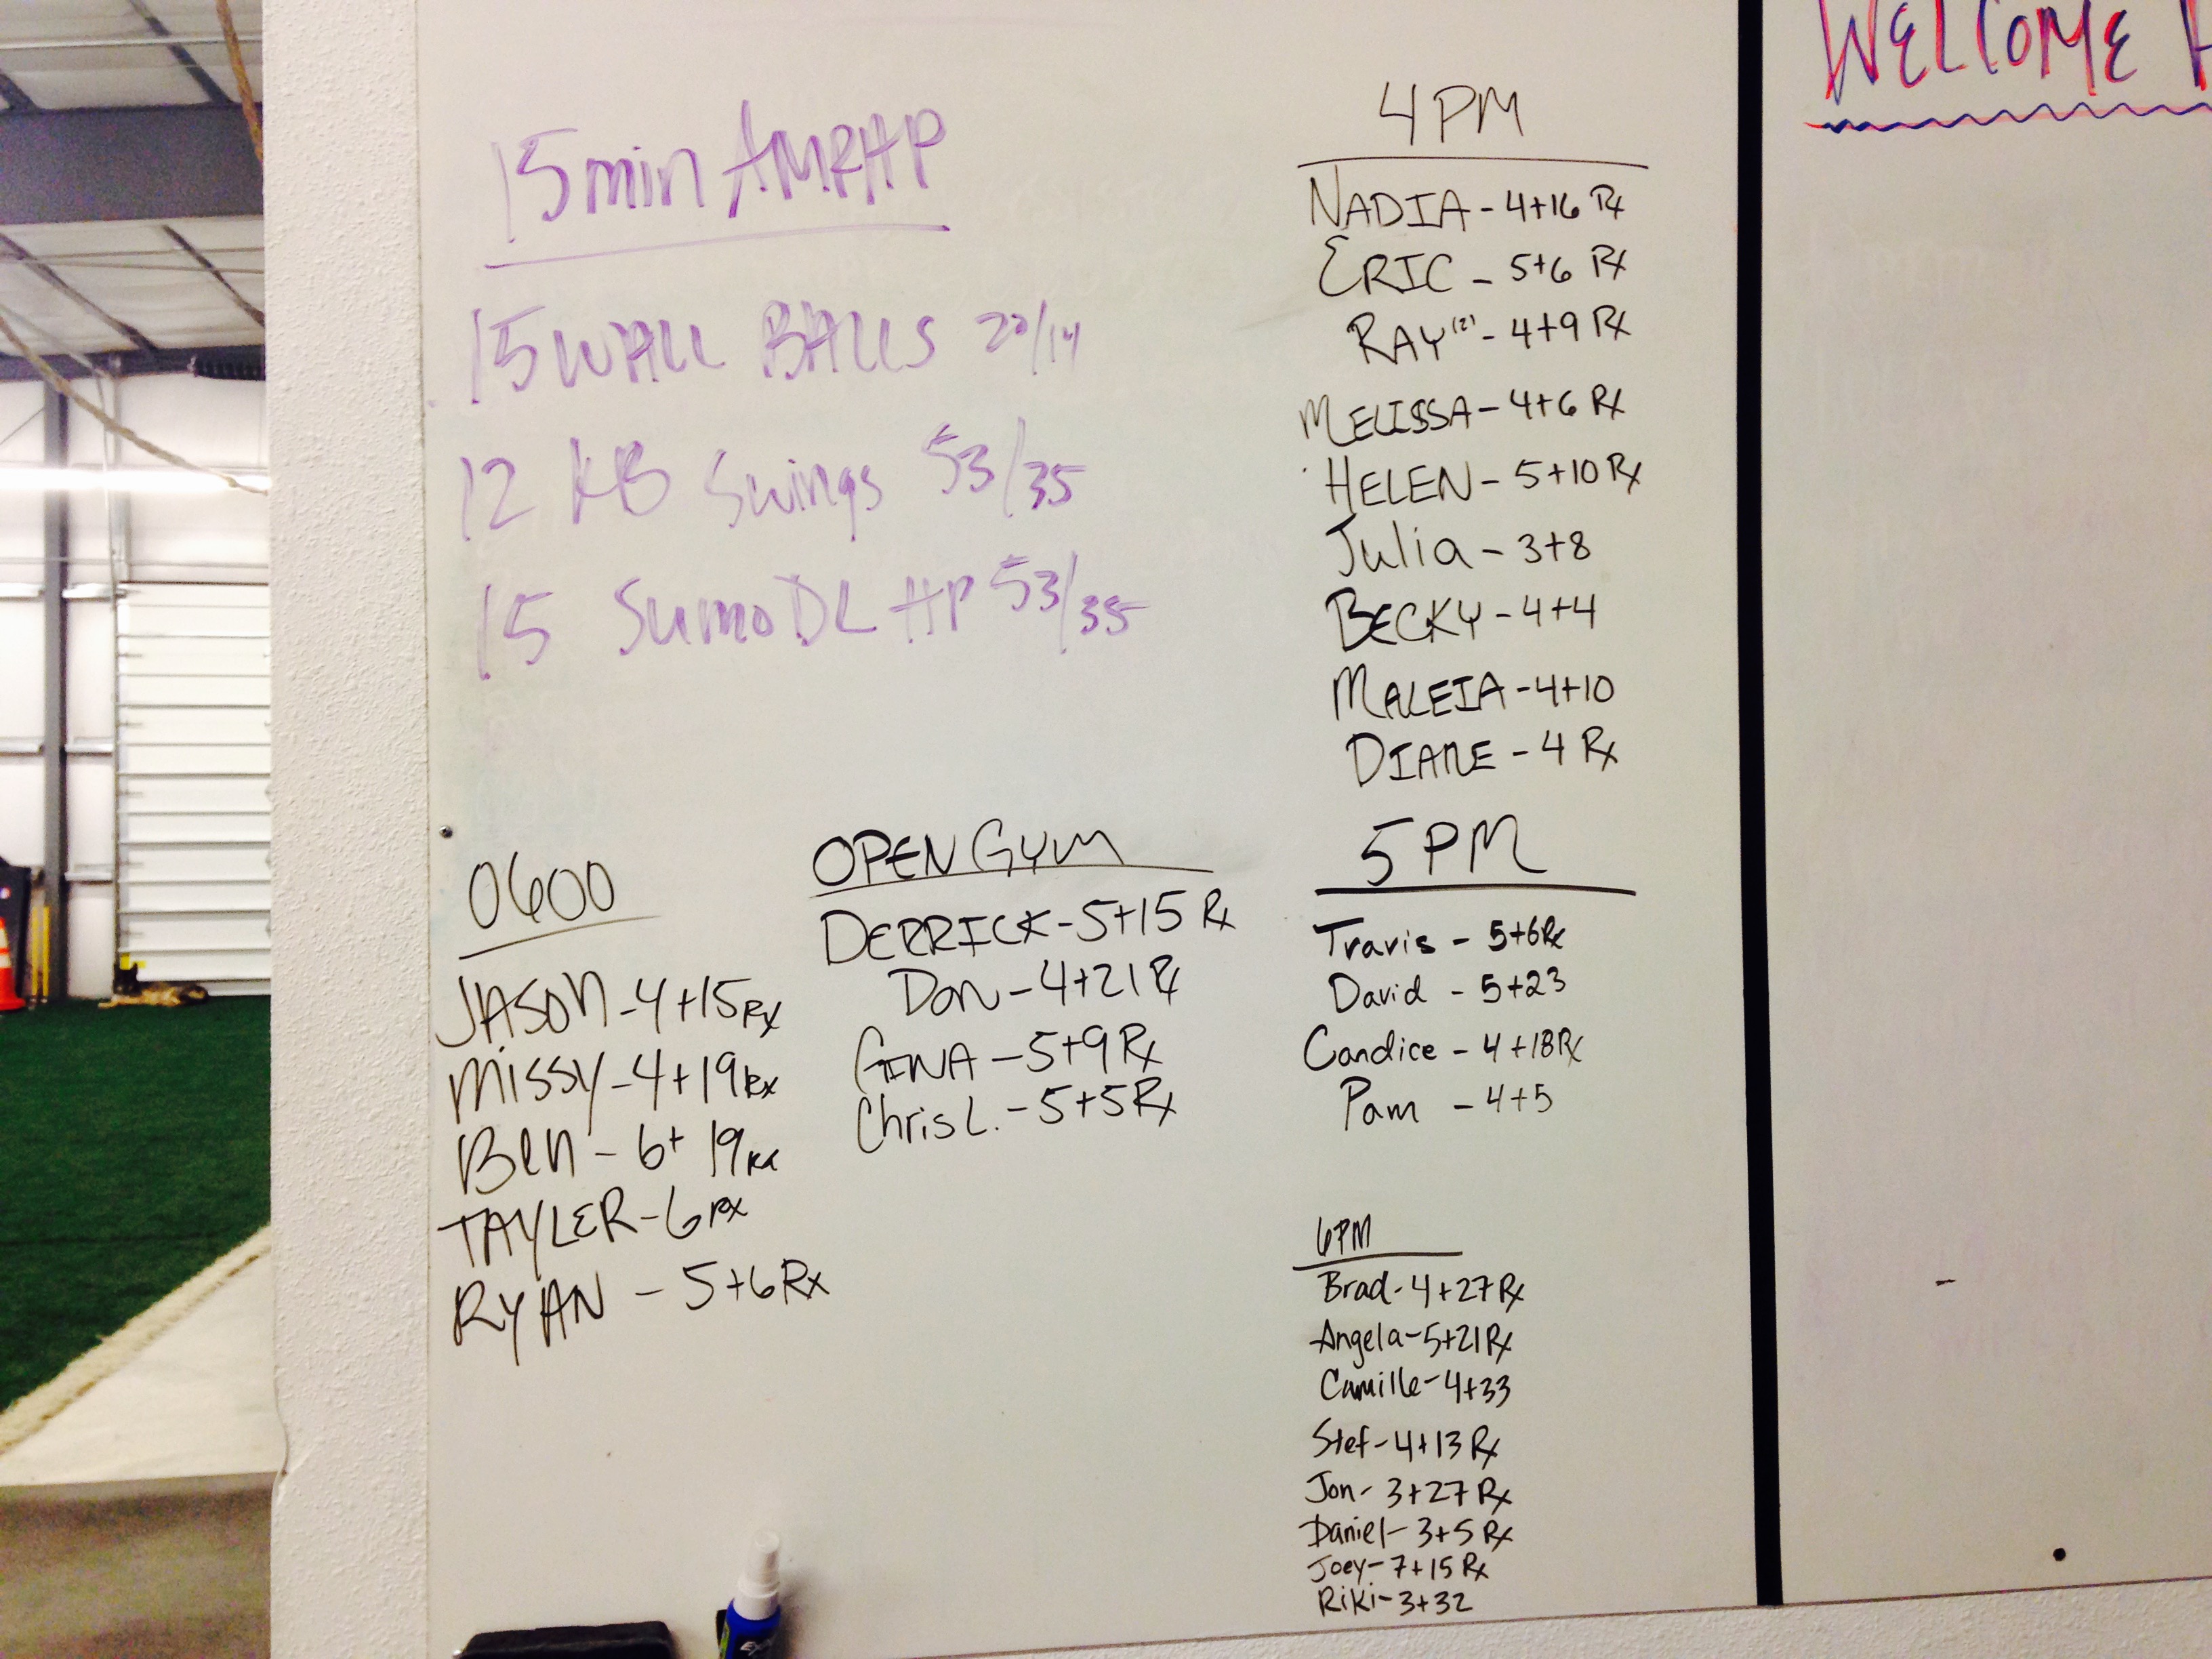 15 min AMRAP
15 WALL BALLS 20/14
12 KB Swings 53/35
15 Sumo DL HP 53/35
0600
JASON - 4+15 Rx
Missy - 4+19 Rx
Ben - 6+ 19 Rx
TAYLER - 6 Rx
RYAN - 5+6 Rx
OPEN GYM
DERRICK - 5+15 Rx
Don - 4+21 Rx
GINA - 5+9 Rx
Chris L. - 5+5 Rx
4 PM
NADIA - 4+16 Rx
ERIC - 5+6 Rx
RAY - 4+9 Rx
MELISSA - 4+6 Rx
HELEN - 5+10 Rx
Julia - 3+8
BECKY - 4+4
MALEIA - 4+10
DIANE - 4 Rx
5 PM
Travis - 5+6 Rx
David - 5+23
Candice - 4+18 Rx
Pam - 4+5
6PM
Brad - 4+27 Rx
Angela - 5+21 Rx
Camille - 4+33
Stef - 4+13 Rx
Jon - 3+27 Rx
Daniel - 3+5 Rx
Joey - 7+15 Rx
Riki - 3+32
WELCOME